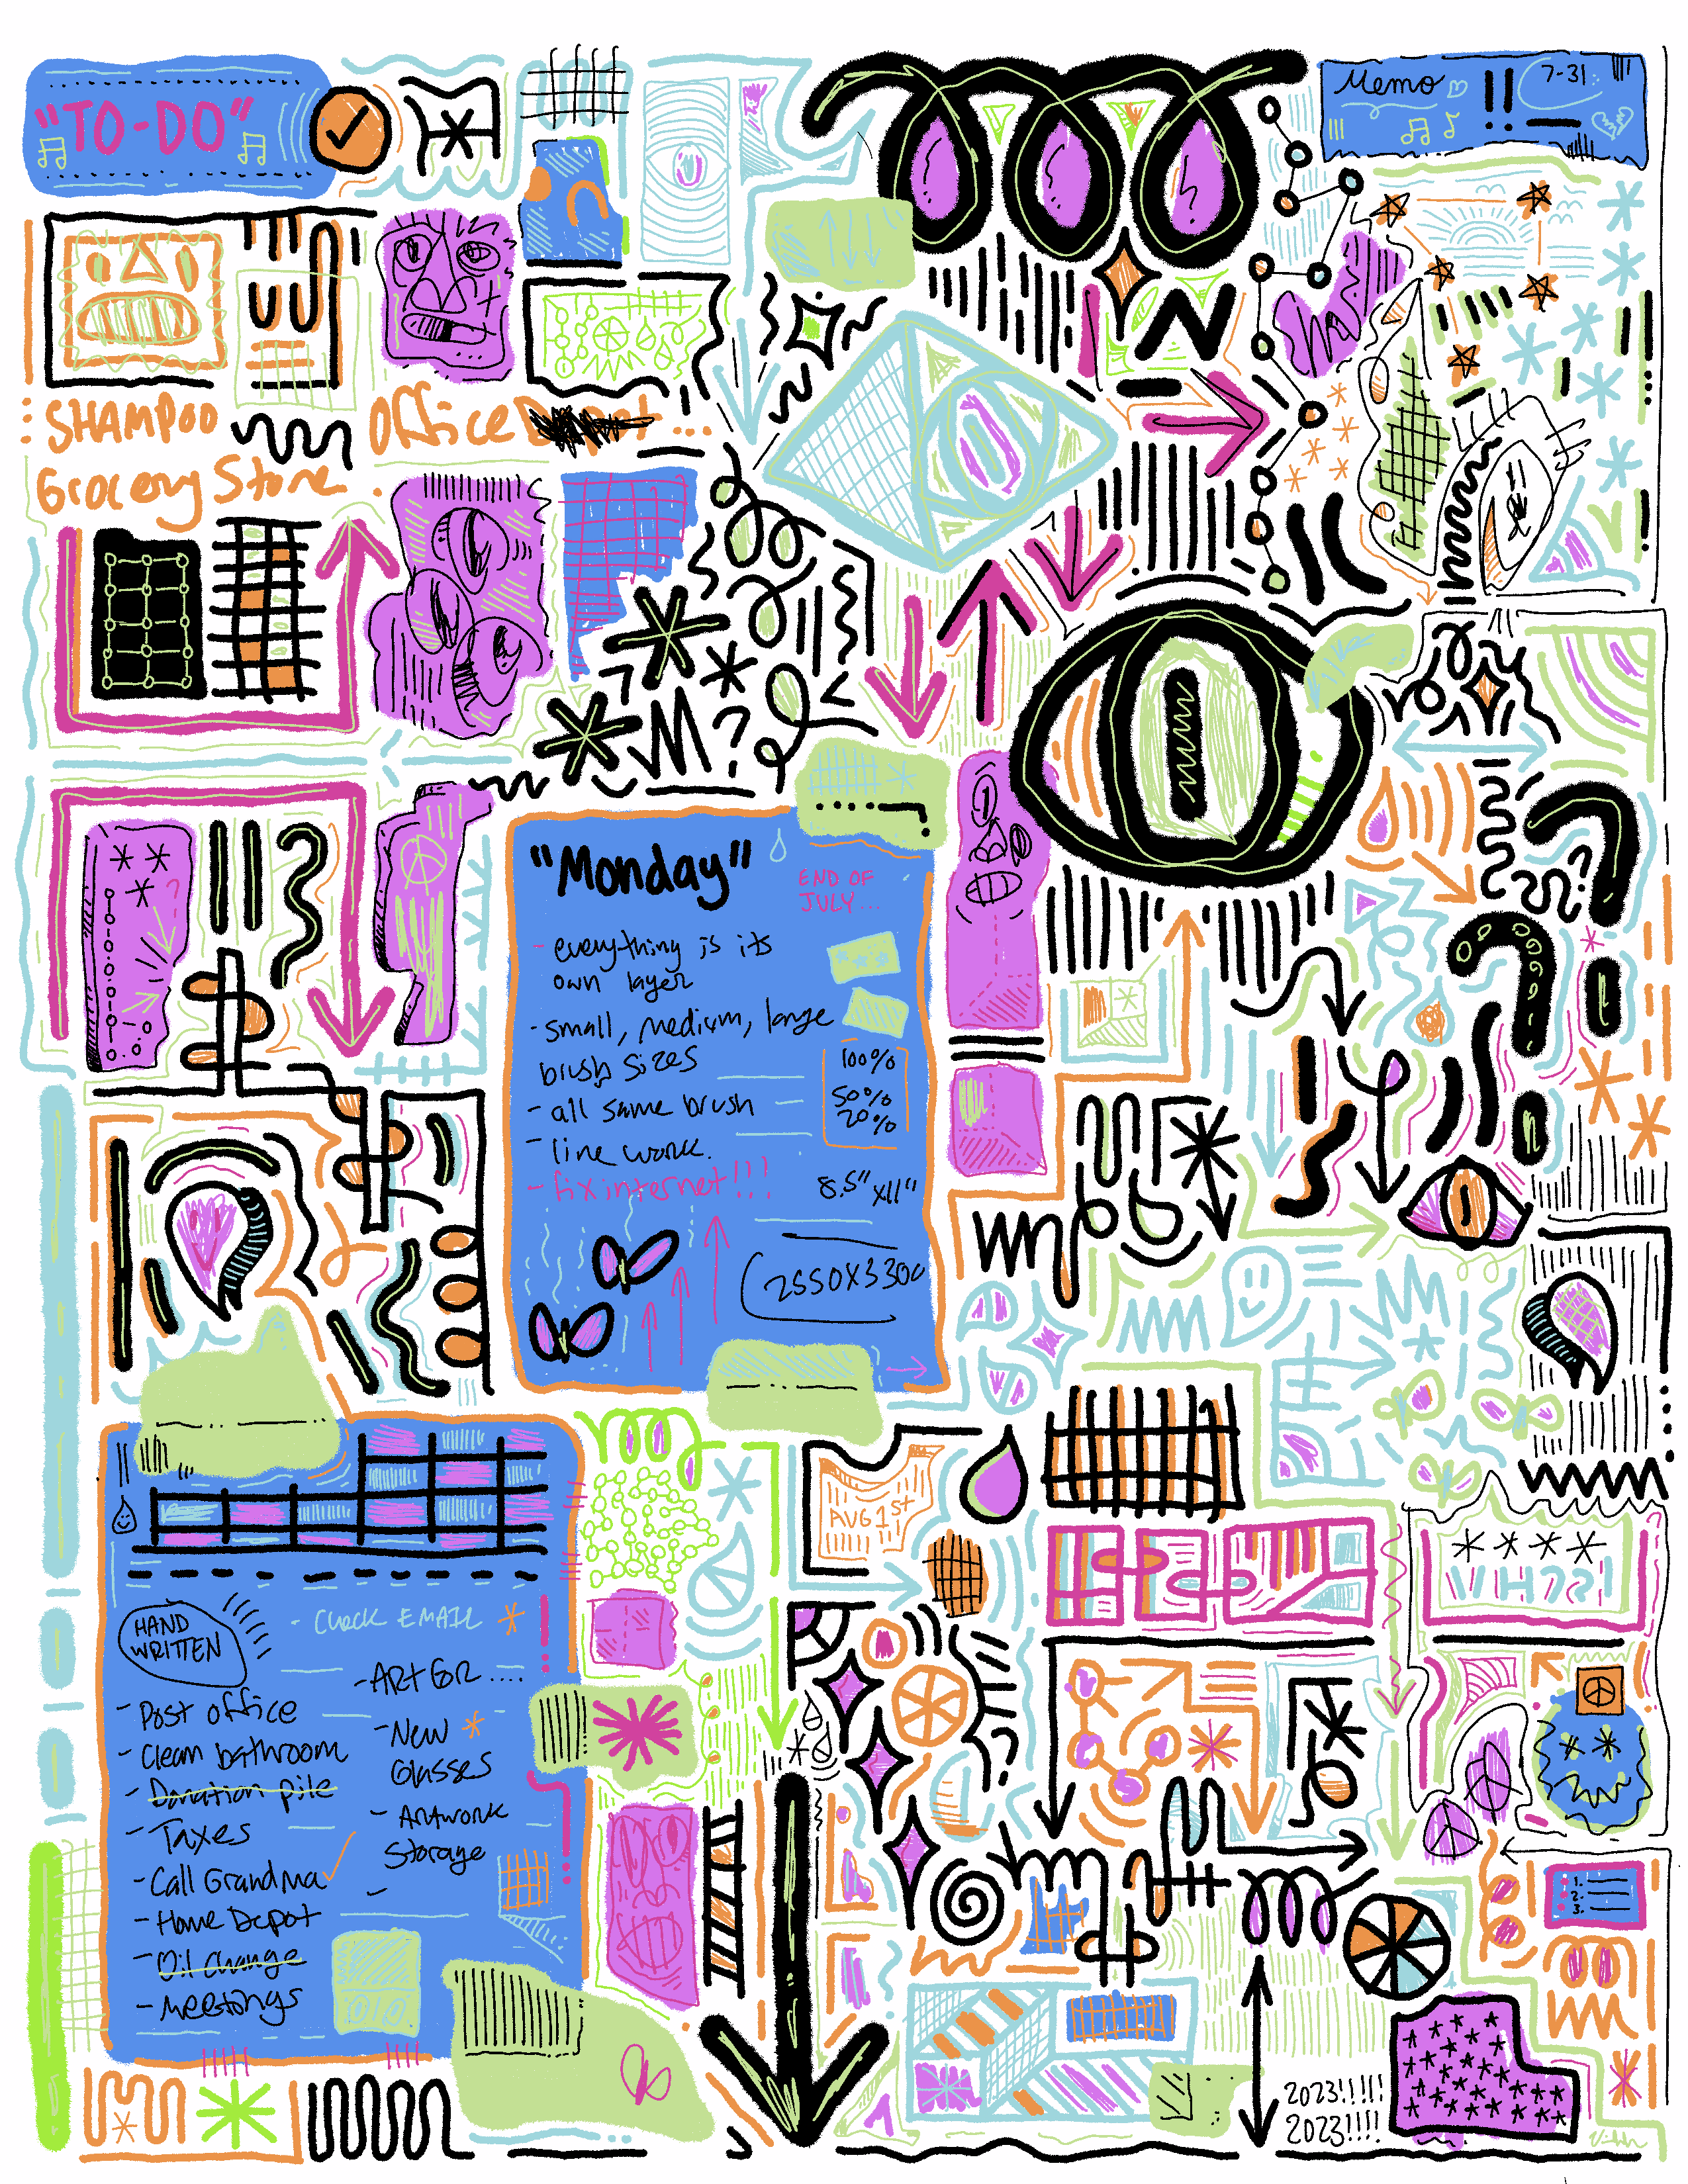 "TO-DO"
Memo !! 7-31
SHAMPOO
Office Depot ...
Grocery Store.
?
"Monday"
END OF
JULY...
- everything is its
own layer
- small, medium, large
brush sizes
100%
50%
20%
- all same brush
- line work.
- fix internet!!!
8.5" x11"
2550x3300
?
?
AVG 1st
HAND
WRITTEN
- Check EMAIL *
- ART FOR ....
- Post office
- New *
Glasses
- Clean bathroom
- Donation pile
- Artwork
Storage
- Taxes
- Call Grandma
- Home Depot
- Oil change
- Meetings
-
* * * *
?
1.
2.
3.
2023!!!!!
2023!!!!